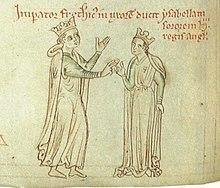 Imp̃ator Fr̃ethic̃ in uxorẽ ducit ysabellam
sororem h̃.
regis Angl̃.